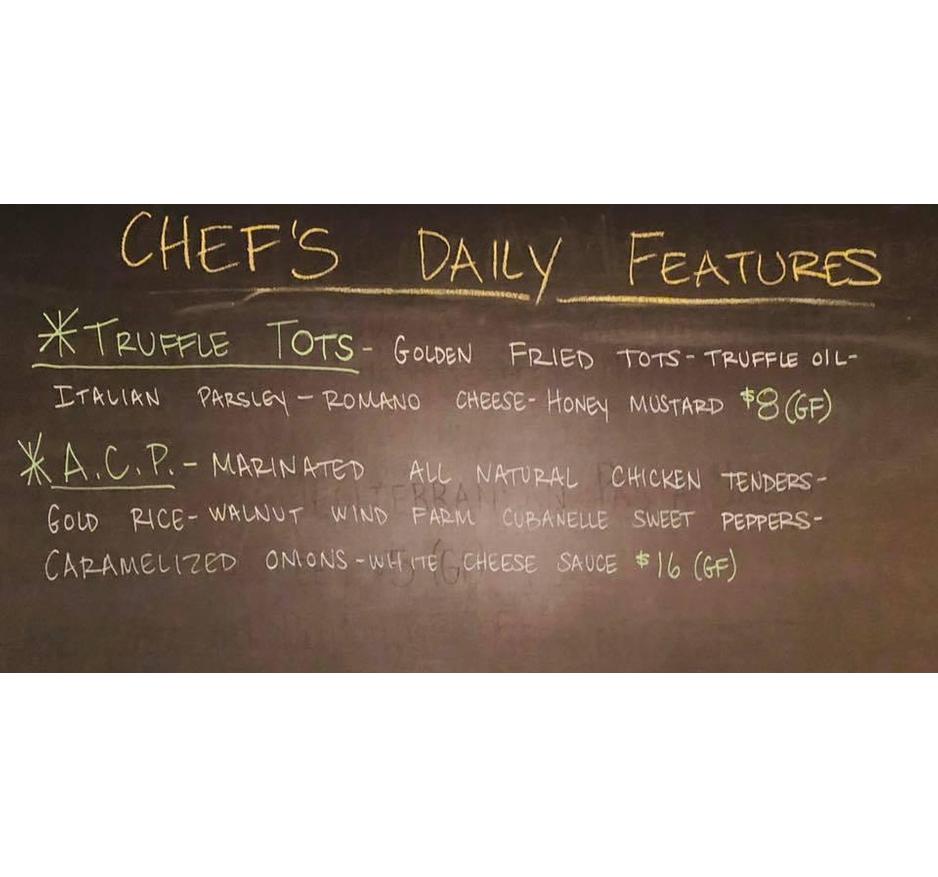 CHEF'S DAILY FEATURES
*TRUFFLE TOTS- GOLDEN FRIED TOTS- TRUFFLE OIL-
ITALIAN PARSLEY- ROMANO CHEESE- HONEY MUSTARD $8 (GF)
*A.C.P.- MARINATED ALL NATURAL CHICKEN TENDERS-
GOLD RICE- WALNUT WIND FARM CUBANELLE SWEET PEPPERS-
CARAMELIZED ONIONS-WHITE CHEESE SAUCE $16 (GF)